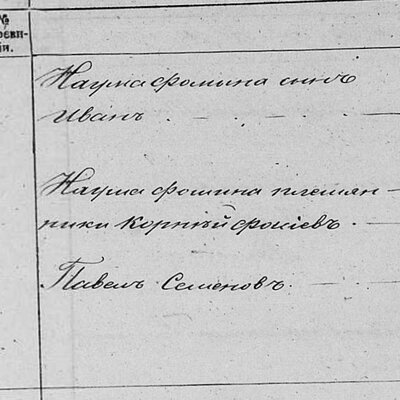 №
реви-
зіи.
Наума Фомина сынъ
Иванъ
Наума Фомина племян-
ники Корнѣй Фотіевъ
Павелъ Семеновъ